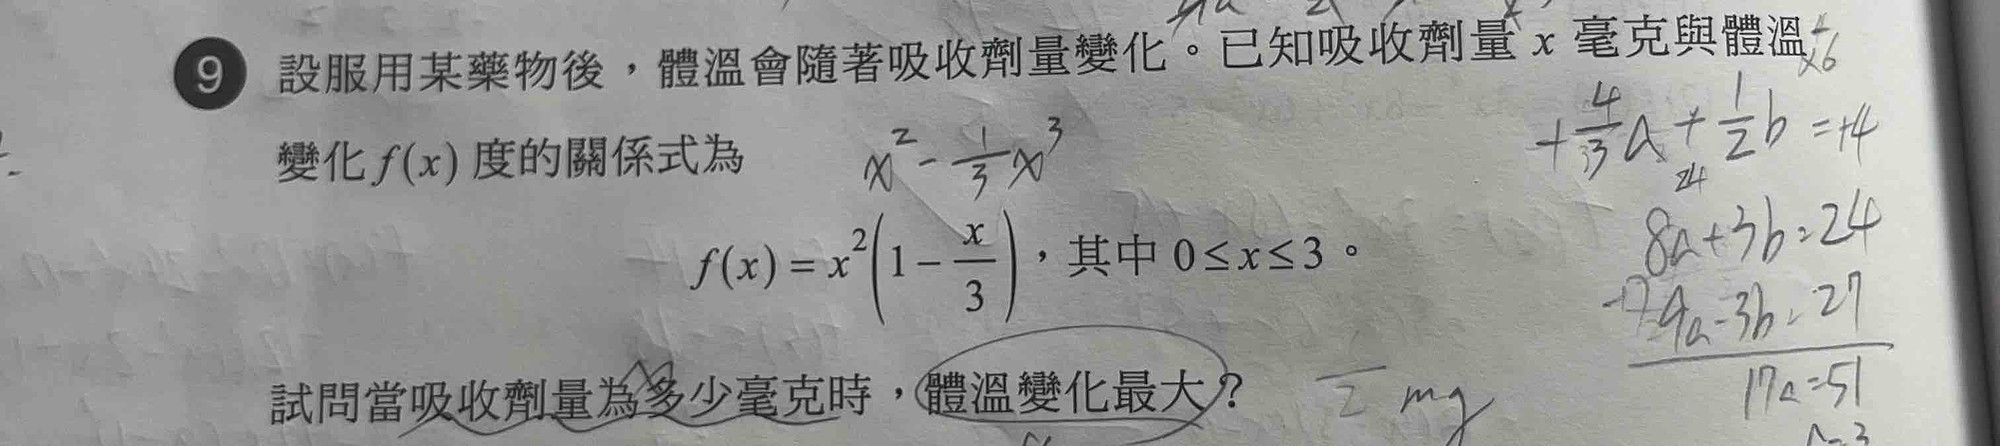 9 設服用某藥物後，體溫會隨著吸收劑量變化。已知吸收劑量 x 毫克與體溫
變化 f(x) 度的關係式為
x² - 1/3 x³
f(x) = x²(1 - x/3)，其中 0 ≤ x ≤ 3。
試問當吸收劑量為多少毫克時，體溫變化最大？
mg
x6
+ 4/3 a + 1/2 b = +4
24
8a+3b=24
9a-3b=27
17a=51